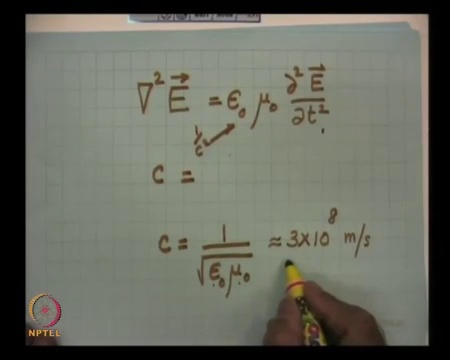 ∇² E⃗ = ε₀ μ₀ ∂² E⃗ / ∂t²
1/c²
c =
c = 1 / √(ε₀ μ₀) ≈ 3×10⁸ m/s
NPTEL